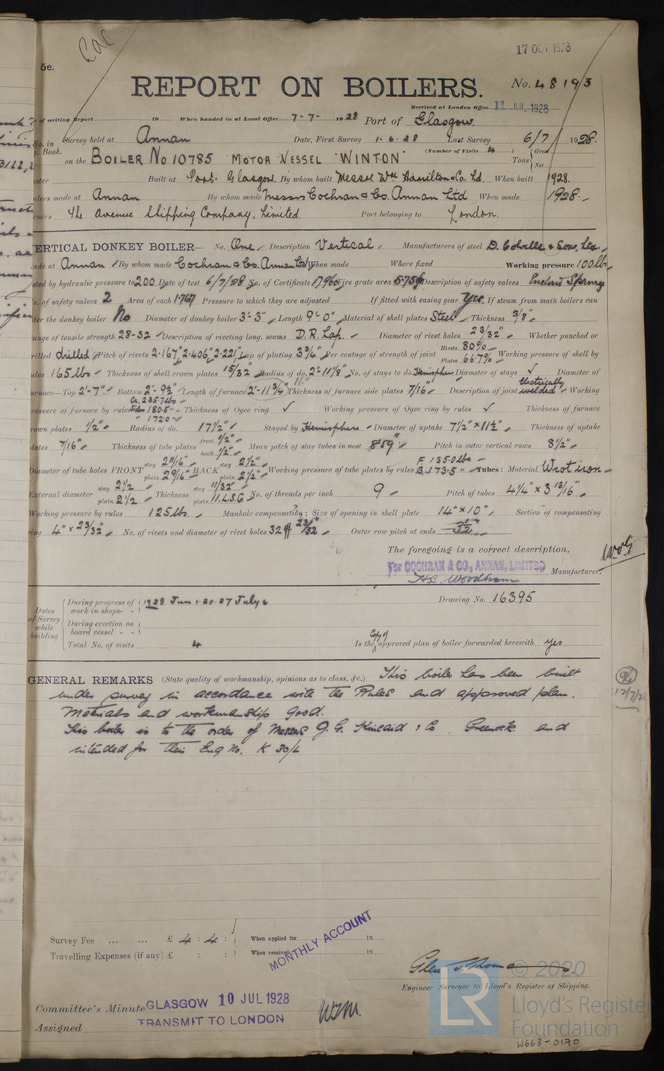 17 OCT 1928
5c.
REPORT ON BOILERS.
No. 48193
Received at London Office 11 JUL 1928
of writing Report 19 When handed in at Local Office 7-7-1928 Port of Glasgow
No. in Survey held at Annan Date, First Survey 1.6.28 Last Survey 6/7/1928
Book. (Number of Visits 4)
on the BOILER No 10785 MOTOR VESSEL "WINTON" Tons Gross Net
Built at Port Glasgow By whom built Messrs Wm Hamilton & Co. Ld. When built 1928
made at Annan By whom made Messrs Cochran & Co. Annan Ltd When made 1928
The Avenue Shipping Company, Limited. Port belonging to London.
VERTICAL DONKEY BOILER — No. One Description Vertical Manufacturers of steel D. Colville & Sons, Ltd.
made at Annan By whom made Cochran & Co. Annan Ltd When made Where fixed Working pressure 100 lbs
tested by hydraulic pressure to 200 Date of test 6/7/28 No. of Certificate 17960 Fire grate area Description of safety valves Enclosed Spring
No. of safety valves 2 Area of each Pressure to which they are adjusted If fitted with easing gear Yes If steam from main boilers can
enter the donkey boiler No Diameter of donkey boiler 3'-3" Length 9'-0" Material of shell plates Steel Thickness 3/8"
Range of tensile strength 28-32 Description of riveting long. seams D.R. Lap. Diameter of rivet holes 23/32" Whether punched or
drilled drilled Pitch of rivets 2.167" 2.406" 2.221" Lap of plating 3 3/4" Per centage of strength of joint Rivets 80% Plates 66.7% Working pressure of shell by
165 lbs Thickness of shell crown plates 15/32" Radius of do. 2'-11 7/8" No. of stays to do. Hemisphere Diameter of stays ✓ Diameter of
furnace—Top 2'-7" Bottom 2'-9 3/4" Length of furnace 2'-11 3/4" Thickness of furnace side plates 7/16" Description of joint electrically welded Working
pressure of furnace by rules 180.5 Thickness of Ogee ring ✓ Working pressure of Ogee ring by rules ✓ Thickness of furnace
crown plates 1/2" Radius of do. 17 1/2" Stayed by Hemisphere Diameter of uptake 7 1/2" x 11 1/2" Thickness of uptake
plates 7/16" Thickness of tube plates front 1/2" back 1/2" Mean pitch of stay tubes in nest 8.59" Pitch in outer vertical rows 8 1/2"
Diameter of tube holes FRONT stay 2 11/16" plain 2 9/16" BACK stay 2 1/2" plain 2 1/2" Working pressure of tube plates by rules F. 135.0 lbs B. 173.5" Tubes: Material Wrot iron
External diameter stay 2 1/2 plain 2 1/2 Thickness stay 11/32" plain 11 L.S.G. No. of threads per inch 9 Pitch of tubes 4 1/4" x 3 13/16"
Working pressure by rules 125 lbs Manhole compensation: Size of opening in shell plate 14" x 10" Section of compensating
ring 4" x 23/32" No. of rivets and diameter of rivet holes 32 of 23/32" Outer row pitch at ends
The foregoing is a correct description,
For COCHRAN & CO., ANNAN, LIMITED Manufacturer.
H.E. Woodham
Dates of Survey while building
During progress of work in shops - - 1928 Jun 1.20.27 July 6
During erection on board vessel - - -
Total No. of visits 4
Drawing No. 16395
Is the Copy of approved plan of boiler forwarded herewith yes
GENERAL REMARKS (State quality of workmanship, opinions as to class, &c.) This boiler has been built
under survey in accordance with the Rules and approved plan.
Materials and workmanship good.
This boiler is to the order of Messrs J.G. Kincaid & Co. Greenock and
intended for their Eng No. K 50/2
Survey Fee ... ... £ 4 : 4 : When applied for 19
Travelling Expenses (if any) £ : : When received 19
MONTHLY ACCOUNT
Engineer Surveyor to Lloyd's Register of Shipping.
Committee's Minute GLASGOW 10 JUL 1928
Assigned TRANSMIT TO LONDON
© 2020
Lloyd's Register
Foundation
W663-0170